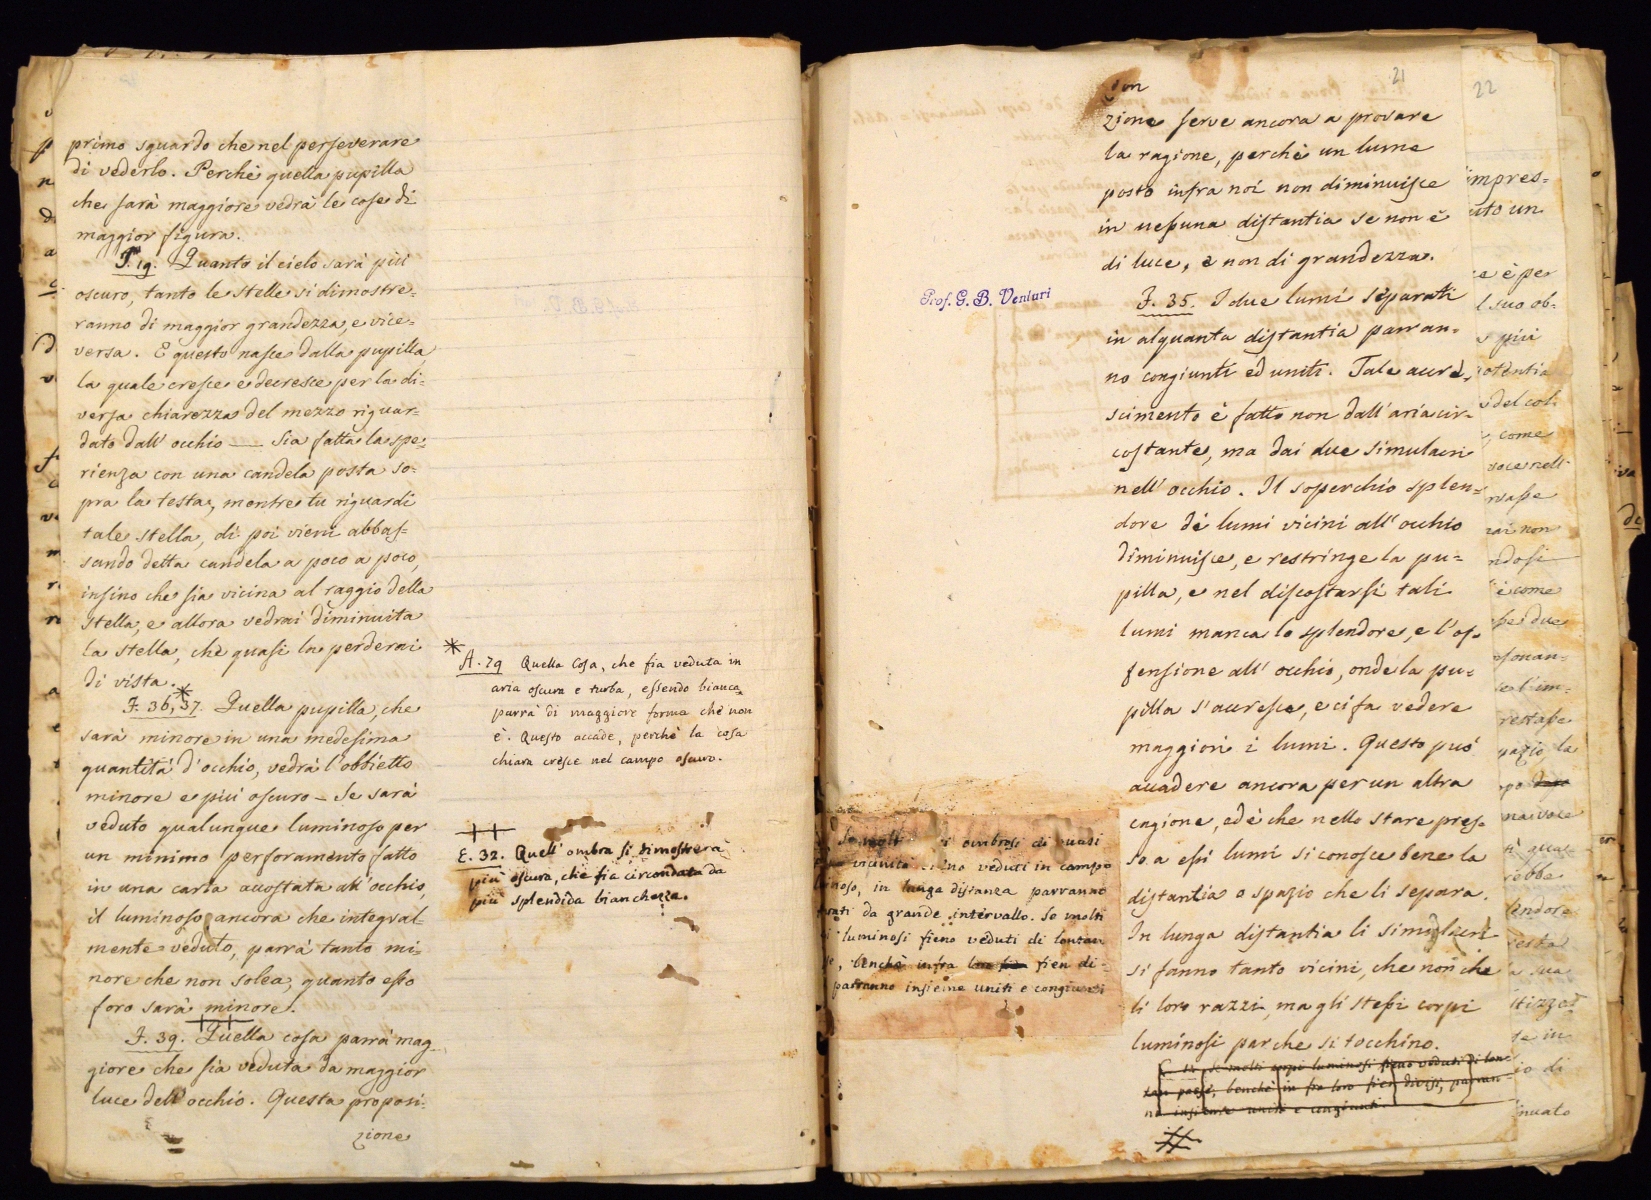 primo sguardo che nel perseverare
di vederlo. Perchè quella pupilla
che sarà maggiore vedrà le cose di
maggior figura.
F. 19. Quanto il cielo sarà più
oscuro, tanto le stelle si dimostre-
ranno di maggior grandezza, e vice-
versa. E questo nasce dalla pupilla,
la quale cresce e decresce per la di-
versa chiarezza del mezzo riguar-
dato dall' occhio — Sia fatta la spe-
rienza con una candela posta so-
pra la testa, mentre tu riguardi
tale stella, di poi vieni abbas-
sando detta candela a poco a poco,
insino che sia vicina al raggio della
stella, e allora vedrai diminuita
la stella, che quasi la perderai
di vista.
F. 36, 37.* Quella pupilla, che
sarà minore in una medesima
quantità d'occhio, vedrà l'obbietto
minore e più oscuro — Se sarà
veduto qualunque luminoso per
un minimo perforamento fatto
in una carta accostata all' occhio,
il luminoso ancora che integral-
mente veduto, parrà tanto mi-
nore che non solea, quanto esso
foro sarà minore.
F. 39. Quella cosa parrà mag-
giore che sia veduta da maggior
luce dell' occhio. Questa proposi-
zione
*
A. 79 Quella Cosa, che fia veduta in
aria oscura e turba, essendo bianca,
parrà di maggiore forma che non
è. Questo accade, perchè la cosa
chiara cresce nel campo oscuro.
E. 32. Quell' ombra si dimostrerà
più oscura, che fia circondata da
più splendida bianchezza.
21
zione serve ancora a provare
la ragione, perchè un lume
posto infra noi non diminuisce
in nessuna distantia se non è
di luce, e non di grandezza.
Prof. G. B. Venturi
F. 35. I due lumi separati
in alquanta distantia parran-
no congiunti ed uniti. Tale accre-
scimento è fatto non dall' aria cir-
costante, ma dai due simulacri
nell' occhio. Il soperchio splen-
dore dè lumi vicini all' occhio
diminuisce, e restringe la pu-
pilla, e nel discostarsi tali
lumi manca lo splendore, e l'of-
fensione all' occhio, onde la pu-
pilla s'accresce, e ci fa vedere
maggiori i lumi. Questo può
accadere ancora per un altra
cagione, ed è che nello stare pres-
so a essi lumi si conosce bene la
distantia o spazio che li separa.
In lunga distantia li simulacri
si fanno tanto vicini, che non che
li loro razzi, ma gli stessi corpi
luminosi par che si tocchino.
Se molti corpi luminosi fieno veduti di lon-
tan paese, benchè in fra loro fien divisi, parran-
no insieme uniti e congiunti.
Se molti ombrosi di quasi
vicinità veduti in campo
luminoso, in lunga distanza parranno
da grande intervallo. Se molti
luminosi fieno veduti di lontan
benchè infra loro fien di-
parranno insieme uniti e congiunti
22
impres-
uto un
è per
suo ob-
più
del col-
come
voce nell'
rai non
ndosi
è come
due
l'im-
restasse
la
rebbe
lendore
resta
sua
te in
io di